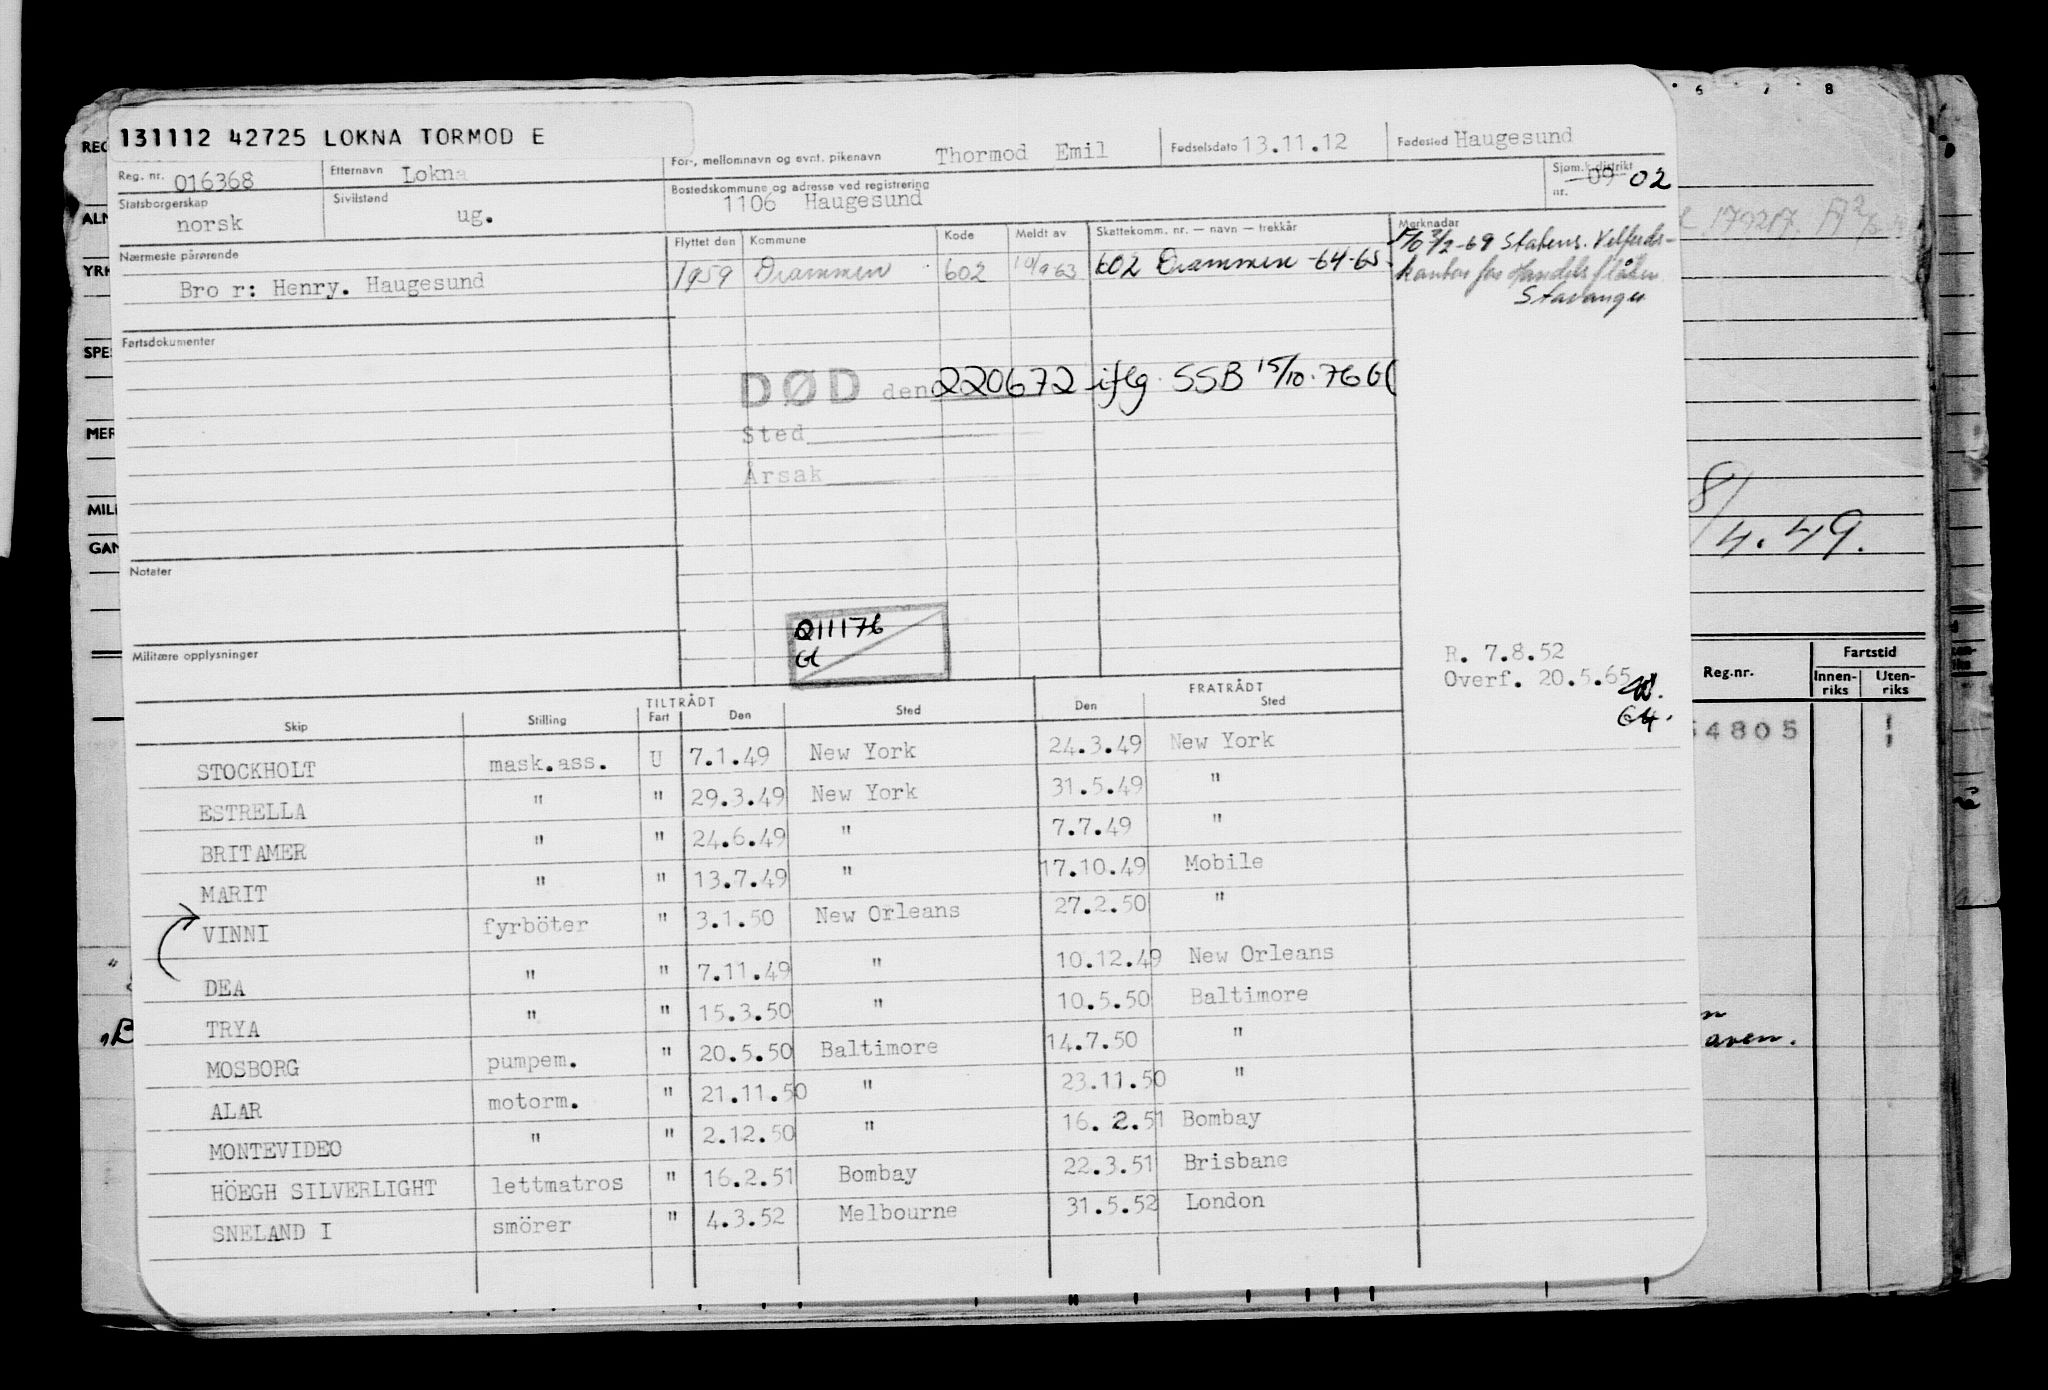 131112 42725 LOKNA TORMOD E
Reg. nr. 016368 Etternavn Lokna For-, mellomnavn og evnt. pikenavn Thormod Emil Fødselsdato 13.11.12 Fødested Haugesund
Statsborgerskap norsk Sivilstand ug. Bostedskommune og adresse ved registrering 1106 Haugesund Sjøm.k.distrikt nr. 09 02
Nærmeste pårørende Flyttet den Kommune Kode Meldt av Skattekomm. nr. — navn — trekkår Merknadar
Bro r: Henry. Haugesund 1959 Drammen 602 10/9 63 602 Drammen -64-65.
3/2-69 Statens. Velferds-
kontor for Handelsflåten
Stavanger
Fartsdokumenter
DØD den 220672 iflg. SSB 15/10.76 Gl
Sted
Årsak
Notater
011176
Gl
Militære opplysninger
R. 7.8.52
Overf. 20.5.65
64.
TILTRÅDT FRATRÅDT
Skip Stilling Fart Den Sted Den Sted
STOCKHOLT mask.ass. U 7.1.49 New York 24.3.49 New York
ESTRELLA " " 29.3.49 New York 31.5.49 "
BRITAMER " " 24.6.49 " 7.7.49 "
MARIT " " 13.7.49 " 17.10.49 Mobile
VINNI fyrböter " 3.1.50 New Orleans 27.2.50 "
DEA " " 7.11.49 " 10.12.49 New Orleans
TRYA " " 15.3.50 " 10.5.50 Baltimore
MOSBORG pumpem. " 20.5.50 Baltimore 14.7.50 "
ALAR motorm. " 21.11.50 " 23.11.50 "
MONTEVIDEO " " 2.12.50 " 16.2.51 Bombay
HÖEGH SILVERLIGHT lettmatros " 16.2.51 Bombay 22.3.51 Brisbane
SNELAND I smörer " 4.3.52 Melbourne 31.5.52 London
REG
ALM
YRK
SPE
MER
MILI
GAN
"B
6 7 8
8/4.49.
Reg.nr. Fartstid
Innen-riks Uten-riks
54805
aven.